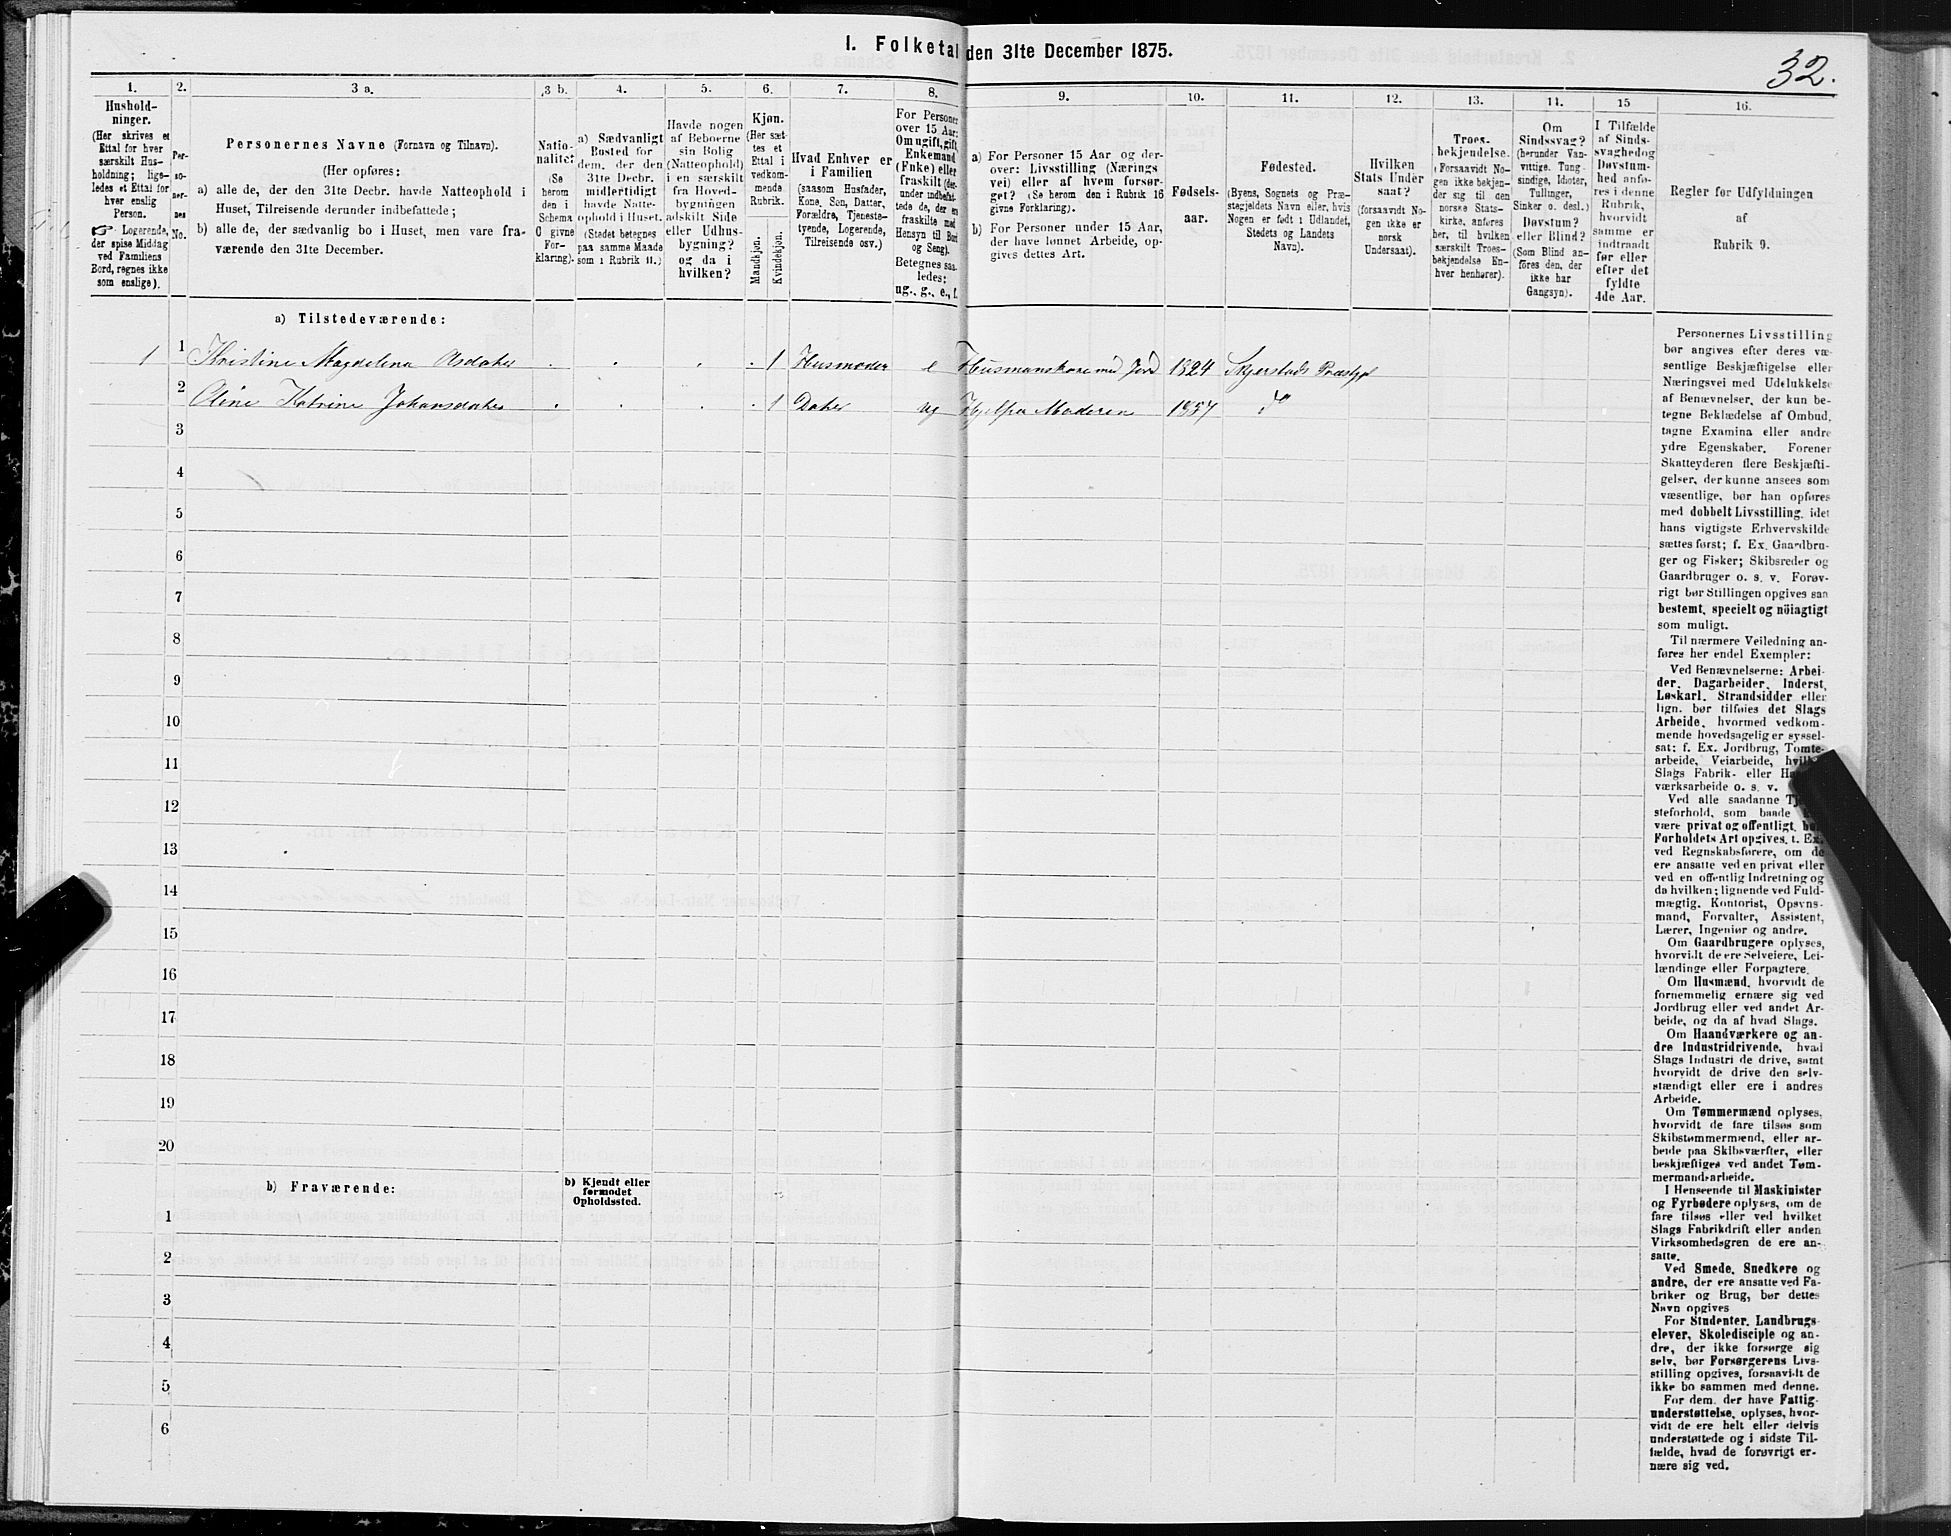 I. Folketal den 31te December 1875.
32.
1.
2.
3 a.
3 b.
4.
5.
6.
7.
8.
9.
10.
11.
12.
13.
14.
15
16.
Hushold-
ninger.
(Her skrives et
Ettal for hver
særskilt Hus-
holdning; lige-
ledes et Ettal for
hver enslig
Person.
☞ Logerende,
der spise Middag
ved Familiens
Bord, regnes ikke
som enslige).
Per-
so-
ner-
nes
No.
Personernes Navne (Fornavn og Tilnavn).
(Her opføres:
a) alle de, der den 31te Decbr. havde Natteophold i
Huset, Tilreisende derunder indbefattede;
b) alle de, der sædvanlig bo i Huset, men vare fra-
værende den 31te December.
Natio-
nalitet
(Se
herom
den i
Schema
O givne
For-
klaring).
a) Sædvanligt
Bosted for
dem, der den
31te Decbr.
midlertidigt
havde Natte-
ophold i Huset.
(Stedet betegnes
paa samme Maade
som i Rubrik 11.)
Havde nogen
af Beboerne
sin Bolig
(Natteophold)
i en særskilt
fra Hoved-
bygningen
adskilt Side
eller Udhus-
bygning?
og da i
hvilken?
Kjøn.
(Her sæt-
tes et
Ettal i
vedkom-
mende
Rubrik.
Mandkjøn.
Kvindekjøn.
Hvad Enhver er
i Familien
(saasom Husfader,
Kone, Søn, Datter,
Forældre, Tjeneste-
tyende, Logerende,
Tilreisende osv.)
For Personer
over 15 Aar:
Om ugift, gift,
Enkemand
(Enke) eller
fraskilt (der-
under indbefat-
tede de, der er
fraskilte med
Hensyn til Bord
og Seng).
Betegnes saa-
ledes:
ug., g., e., f.
a) For Personer 15 Aar og der-
over: Livsstilling (Nærings
vei) eller af hvem forsør-
get? (Se herom den i Rubrik 16
givne Forklaring).
b) For Personer under 15 Aar,
der have lønnet Arbeide, op-
gives dettes Art.
Fødsels-
aar.
Fødested.
(Byens, Sognets og Præ-
stegjeldets Navn eller, hvis
Nogen er født i Udlandet,
Stedets og Landets
Navn).
Hvilken
Stats Under
saat?
(forsaavidt No-
gen ikke er
norsk
Undersaat).
Troes-
bekjendelse.
(Forsaavidt No-
gen ikke bekjen-
der sig til den
norske Stats-
kirke, anføres
her, til hvilken
særskilt Troes-
bekjendelse En-
hver henhører).
Om
Sindssvag?
(herunder Van-
vittige. Tung-
sindige, Idioter,
Tullinger,
Sinker o. desl.)
Døvstum?
eller Blind?
(Som Blind an-
føres den, der
ikke har
Gangsyn).
I Tilfælde
af Sinds-
svaghed og
Døvstum-
hed anfø-
res i denne
Rubrik,
hvorvidt
samme er
indtraadt
før eller
efter det
fyldte
4de Aar.
Regler for Udfyldningen
af
Rubrik 9.
a) Tilstedeværende:
1 1 Kristine Magdelena Asdater . . . . 1 Husmoder e Husmanskone med Jord 1824 Skjerstads Præstgjl
2 Oline Katrine Johansdater . . . . 1 Dater ug Hjelpa Moderen 1857 do
3
4
5
6
7
8
9
10
11
12
13
14
15
16
17
18
19
20
b) Fraværende:
b) Kjendt eller
formodet
Opholdssted.
1
2
3
4
5
6
Personernes Livsstilling
bør angives efter deres væ-
sentlige Beskjæftigelse eller
Næringsvei med Udelukkelse
af Benævnelser, der kun be-
tegne Beklædelse af Ombud,
tagne Examina eller andre
ydre Egenskaber. Forener
Skatteyderen flere Beskjæfti-
gelser, der kunne ansees som
væsentlige, bør han opføres
med dobbelt Livsstilling, idet
hans vigtigste Erhvervskilde
sættes først; f. Ex. Gaardbru-
ger og Fisker; Skibsreder og
Gaardbruger o. s. v. Forøv-
rigt bør Stillingen opgives saa
bestemt, specielt og nöiagtigt
som muligt.
Til nærmere Veiledning an-
føres her endel Exempler:
Ved Benævnelserne: Arbei-
der, Dagarbeider, Inderst,
Løskarl, Strandsidder eller
lign. bør tilføies det Slags
Arbeide, hvormed vedkom-
mende hovedsagelig er syssel-
sat; f. Ex. Jordbrug, Tomte-
arbeide, Veiarbeide,
Slags Fabrik- eller
værksarbeide o. s. v.
Ved alle saadanne
steforhold, som baade
være privat og offentligt,
Forholdets Art opgives, t. Ex.
ved Regnskabsførere, om de
ere ansatte ved en privat eller
ved en offentlig Indretning og
da hvilken; lignende ved Fuld-
mægtig, Kontorist, Opsyns-
mand, Forvalter, Assistent,
Lærer, Ingeniør og andre.
Om Gaardbrugere oplyses,
hvorvidt de ere Selveiere, Lei-
lændinge eller Forpagtere.
Om Husmænd, hvorvidt de
fornemmelig ernære sig ved
Jordbrug eller ved andet Ar-
beide, og da af hvad Slags.
Om Haandværkere og an-
dre Industridrivende, hvad
Slags Industri de drive, samt
hvorvidt de drive den selv-
stændigt eller ere i andres
Arbeide.
Om Tømmermænd oplyses,
hvorvidt de fare tilsøs som
Skibstømmermænd, eller ar-
beide paa Skibsværfter, eller
beskjæftiges ved andet Tøm-
mermandsarbeide.
I Henseende til Maskinister
og Fyrbødere oplyses, om de
fare tilsøs eller ved hvilket
Slags Fabrikdrift eller anden
Virksomhedsgren de ere an-
satte.
Ved Smede, Snedkere og
andre, der ere ansatte ved Fa-
briker og Brug, bør dettes
Navn opgives
For Studenter, Landbrugs-
elever, Skoledisciple og an-
dre, der ikke forsørge sig
selv, bør Forsørgerens Livs-
stilling opgives, forsaavidt de
ikke bo sammen med denne.
For dem, der have Fattig-
understøttelse, oplyses, hvor-
vidt de ere helt eller delvis
understøttede og i sidste Til-
fælde, hvad de forøvrigt er-
nære sig ved.